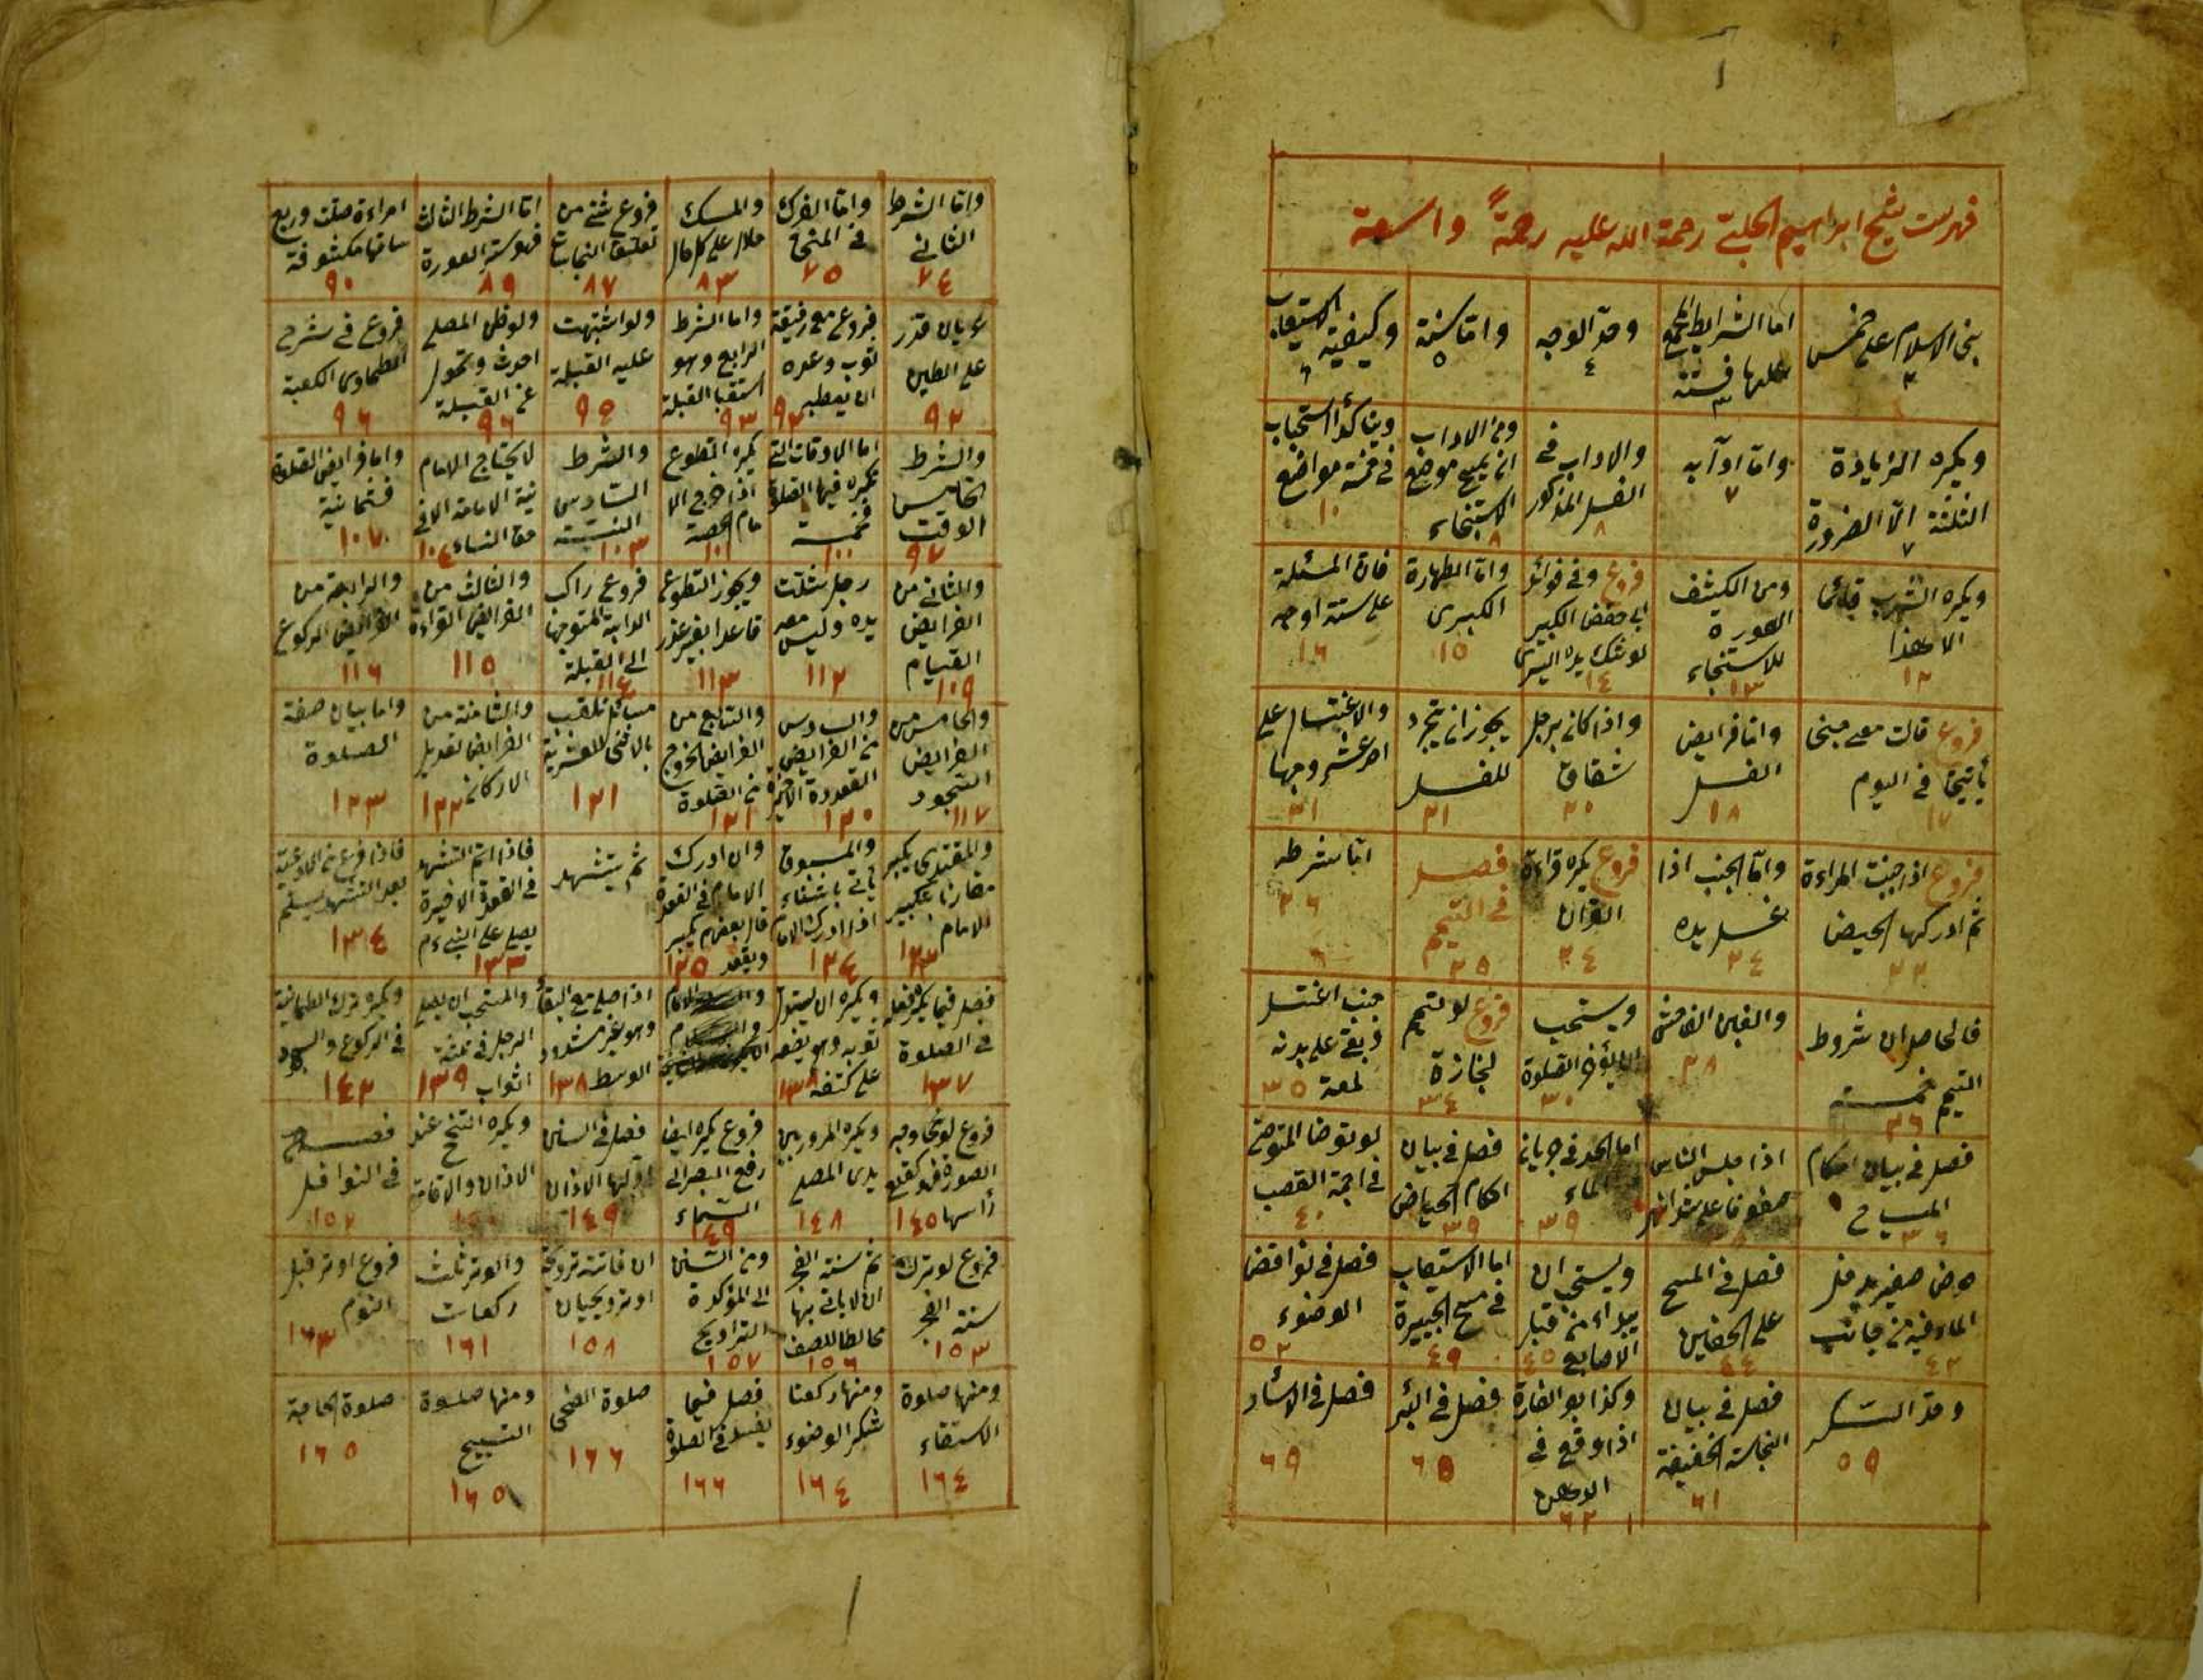 فهرست شيخ ابراهيم الحلبى رحمة الله عليه رحمةً واسعة
بنى الاسلام على خمس ٢
اما الشرايط فستة ٣
وحد الوجه ٤
واما سننه ٥
وكيفية الاستيعاب ٦
ويكره الزيادة الثلثة الا الضرورة ٧
واما آدابه ٧
والاداب فى الغسل المذكور ٨
ومن الاداب ان يمسح موضع الاستنجاء ٨
ويتأكد استحباب فى خمسة مواضع ١٠
ويكره الشرب قائما الا هذا ١٢
ومن الكشف العورة للاستنجاء ١٣
فروع وفى فوائد ابى حفص الكبير لو شك يده اليسرى ١٤
واما الطهارة الكبرى ١٥
فان المسئلة على ستة اوجه ١٦
فروع قالت معى جنى يأتينى فى اليوم ١٧
واما فرايض الغسل ١٨
واذا كان برجله شقاق ٢٠
يجوز ان يتجرد للغسل ٢١
والاغتسال على احد عشر وجها ٢١
فروع اذا جنبت المراءة ثم ادركها الحيض ٢٢
واما الجنب اذا غسل يده ٢٤
فروع يكره قراءة القرآن ٢٤
فصل فى التيمم ٢٥
اما شرطه ٢٦
فالحاصل ان شروط التيمم خمسة ٢٦
والغبن الفاحش ٢٨
ويستحب ان يؤخر الصلوة ٣٠
فروع لو تيمم لجنازة ٣٤
جنب اغتسل وبقى على بدنه لمعة ٣٥
فصل فى بيان احكام المياه ٣٦
اذا جلس الناس صفوفا على شط النهر
اما الحد فى جريان الماء ٣٩
فصل فى بيان احكام الحياض ٣٩
لو توضا المتوضى فى اجمة القصب ٤٠
حوض صغير يدخل الماء فيه من جانب ٤٢
فصل فى المسح على الخفين ٤٤
ويستحب ان يبداء من قبل الاصابع ٤٥
اما الاستيعاب فى مسح الجبيرة ٤٩
فصل فى نواقض الوضوء ٥٢
وحد السكر ٥٩
فصل فى بيان النجاسة الخفيفة ٦١
وكذا بول الفارة اذا وقع فى الدهن ٦٢
فصل فى البئر ٦٥
فصل فى الاسأر ٦٩
واما الشرط الثانى ٧٤
واما الفرك فى المنى ٧٥
والمسك حلال على كل حال ٨٣
فروع شتى من تعليق النجاسات ٨٧
اما الشرط الثالث فهو ستر العورة ٨٩
امراءة صلت وربع ساقها مكشوفة ٩٠
عريان قدر على الطين ٩٢
فروع مع رفيقه ثوب وعده ان يعطيه ٩٢
واما الشرط الرابع وهو استقبال القبلة ٩٣
ولو اشتبهت عليه القبلة ٩٥
ولو ظن المصلى احدث وتحول عن القبلة ٩٦
فروع فى شرح الطحاوى الكعبة ٩٦
والشرط الخامس الوقت ٩٧
اما الاوقات التى تكره فيها الصلوة فخمسة ١٠٠
يكره التطوع اذا خرج الامام الجمعة ١٠١
والشرط السادس النية ١٠٣
لا يحتاج الامام نية الامامة الا فى حق النساء ١٠٤
واما فرايض الصلوة فثمانية ١٠٧
والثانى من الفرايض القيام ١٠٩
رجل شلت يده وليس معه ١١٢
ويجوز التطوع قاعدا بغير عذر ١١٣
فروع راكب الدابة المتوجها الى القبلة ١١٤
والثالث من الفرايض القراءة ١١٥
والرابعة من الفرايض الركوع ١١٦
والخامس من الفرايض السجود ١١٧
والسادس من الفرايض القعدة الاخيرة ١٢٠
والسابع من الفرايض الخروج من الصلوة ١٢١
مسائل تلقب بالاثنى للعشرية ١٢١
والثامنة من الفرايض تعديل الاركان ١٢٢
واما بيان صفة الصلوة ١٢٣
والمقتدى يكبر مقارنا بتكبير الامام ١٢٣
والمسبوق يأتى بالثناء اذا ادرك الامام ١٢٤
وان ادرك الامام فى القعدة قال بعضهم يكبر ويقعد ١٢٥
ثم يتشهد
فاذا اتم التشهد فى القعدة الاخيرة يصلى على النبى ءم ١٣٣
فاذا فرغ من الادعية بعد التشهد يسلم ١٣٤
فصل فيما يكره فعله فى الصلوة ١٣٧
ويكره ان يشتمل ثوبه وهو يضعه على كتفه ١٣٨
اذا صلى مع القباء وهو غير مشدود الوسط ١٣٨
والمستحب ان يصلى الرجل فى ثلثة اثواب ١٣٩
ويكره ترك الطمانينة فى الركوع والسجود ١٤٢
فروع لو محا وجه الصورة فهو كقطع رأسها ١٤٥
ويكره المرور بين يدى المصلى ١٤٨
فروع يكره ايضا رفع البصر الى السماء ١٤٩
فصل فى السنن اولها الاذان ١٤٩
ويكره التنحنح عند الاذان والاقامة ١٥٠
فصل فى النوافل ١٥٢
فروع لو ترك سنة الفجر ١٥٣
ثم سنة الفجر ان لا ياتى بها مخالطا للصف ١٥٦
ومن السنن المؤكدة التراويح ١٥٧
ان فاتته ترويحة او ترويحتان ١٥٨
والوتر ثلث ركعات ١٦١
فروع اوتر قبل النوم ١٦٣
ومنها صلوة الاستسقاء ١٦٤
ومنها ركعتا شكر الوضوء ١٦٤
فصل فيما يفسد فى الصلوة ١٦٦
صلوة الضحى ١٦٦
ومنها صلوة التسبيح ١٦٥
صلوة الحاجة ١٦٥